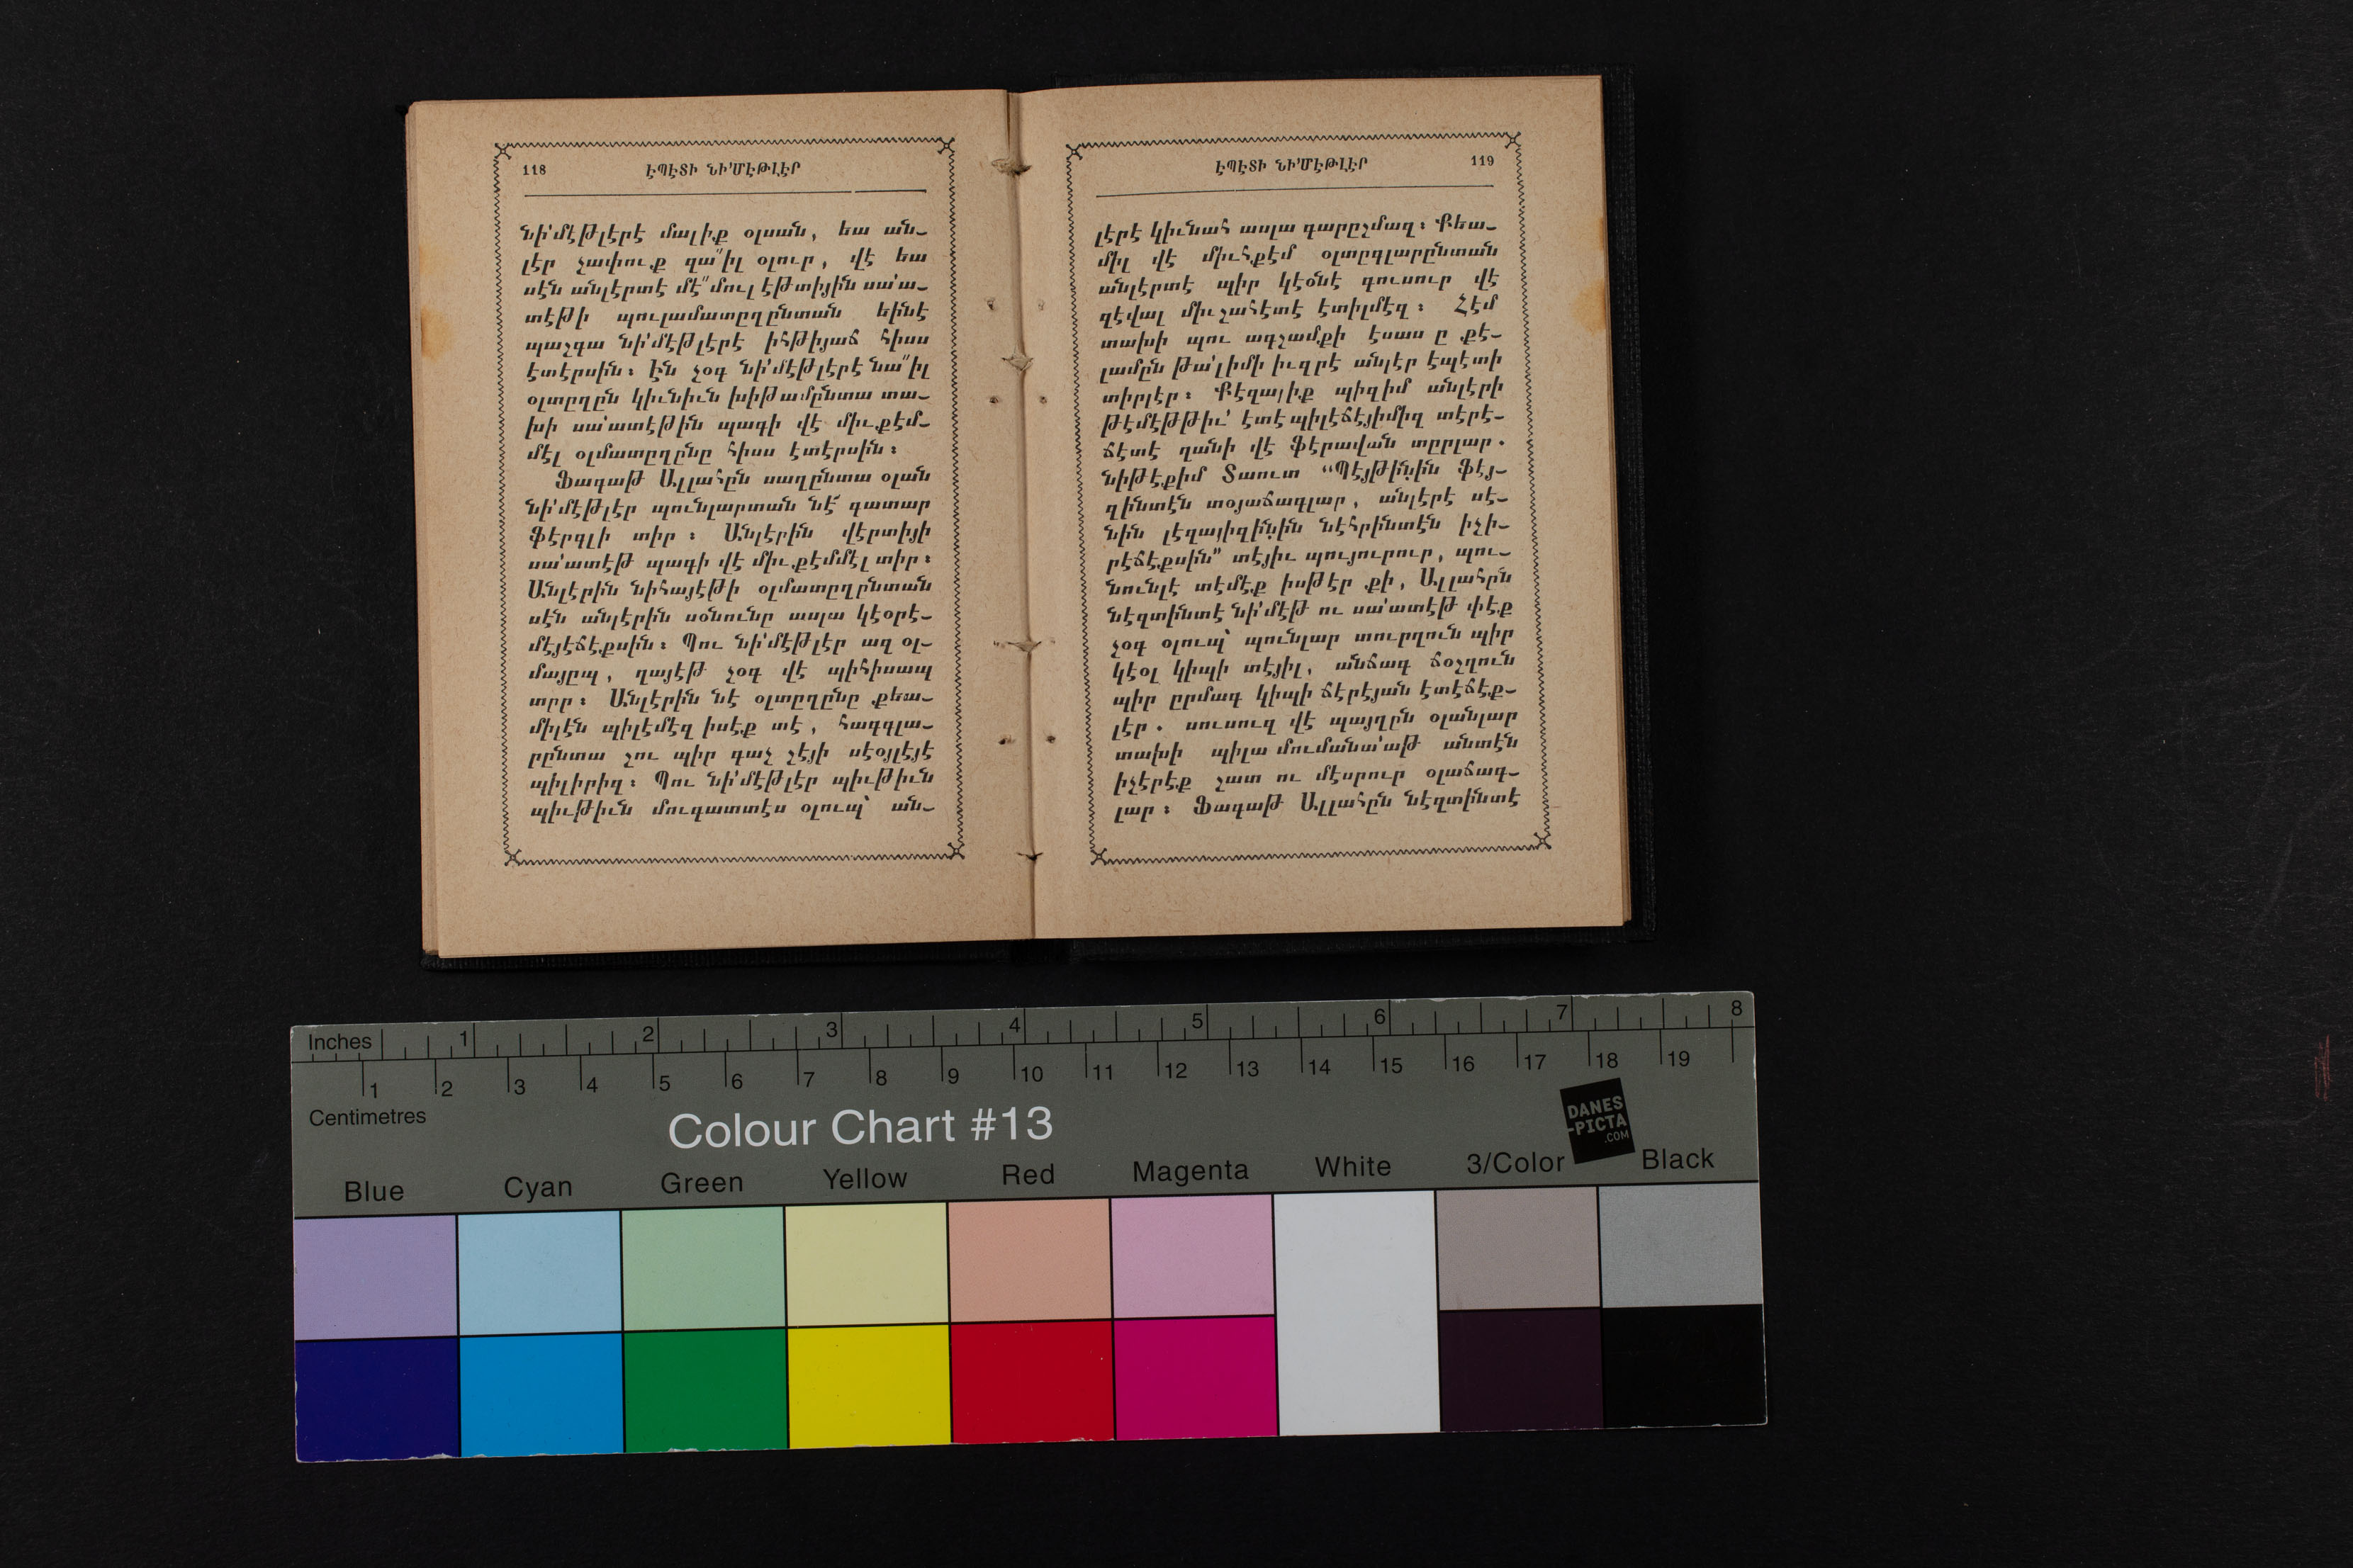 118 ԷՊԷՏԻ ՆԻ՛ՄԷԹԼԷՐ
նի՛մէթլէրէ մալիք օլսան, եա ան-
լէր չափուք զա՞իլ օլուր, վէ եա
սէն անլէրտէ մէ՞մուլ էթտիյին սա՛ա-
տէթի պուլամատըղընտան եինէ
պաշգա նի՛մէթլէրէ իհթիյաճ հիսս
էտէրսին։ Էն չօգ նի՛մէթլէրէ նա՞իլ
օլտըղըն կիւնիւն խիթամընտա տա-
խի սա՛ատէթին պագի վէ միւքէմ-
մէլ օլմատըղընը հիսս էտէրսին։
Ֆագաթ Ալլահըն սաղընտա օլան
նի՛մէթլէր պունլարտան նէ՜ գատար
ֆէրգլի տիր ։ Անլէրին վէրտիյի
սա՛ատէթ պագի վէ միւքէմմէլ տիր։
Անլէրին նիհայէթի օլմատըղընտան
սէն անլէրին սօնունը ասլա կէօրէ-
մէյէճէքսին։ Պու նի՛մէթլէր աղ օլ-
մայըպ, ղայէթ չօգ վէ պիհիսապ
տըր։ Անլէրին նէ օլտըղընը քեա-
միլէն պիլէմէզ իսէք տէ, հագգլա-
րընտա շու պիր գաչ շէյի սէօյլէյէ
պիլիրիզ։ Պու նի՛մէթլէր պիւթիւն
պիւթիւն մուգատտէս օլուպ՝ ան-
ԷՊԷՏԻ ՆԻ՛ՄԷԹԼԷՐ 119
լէրէ կիւնահ ասլա գարըշմազ։ Քեա-
միլ վէ միւհքէմ օլտըգլարընտան
անլէրտէ պիր կէօնէ գուսուր վէ
զէվալ միւշահէտէ էտիլմէզ։ Հէմ
տախի պու ագչամքի էսաս ը քէ-
լամըն թա՛լիմի իւզրէ անլէր էպէտի
տիրլէր։ Քէզալիք պիզիմ անլէրի
թէմէթթիւ՛ էտէպիլէճէյիմիզ տէրէ-
ճէտէ ղանի վէ ֆէրավան տըրլար.
նիթէքիմ Տաուտ “Պէյթինին ֆէյ-
զինտէն տօյաճագլար, անլէրէ սէ-
նին լէզայիզինին նէհրինտէն իչի-
րէճէքսին” տէյիւ պույուրուր, պու-
նունլէ տէմէք իսթէր քի, Ալլահըն
նէզտինտէ նի՛մէթ ու սա՛ատէթ փէք
չօգ օլուպ՝ պունլար տուրղուն պիր
կէօլ կիպի տէյիլ, անճագ ճօշղուն
պիր ըրմագ կիպի ճէրէյան էտէճէք-
լէր. սուսուզ վէ պայղըն օլանլար
տախի պիլա մումանա՛աթ անտէն
իչէրէք շատ ու մէսրուր օլաճագ-
լար։ Ֆագաթ Ալլահըն նէզտինտէ
Inches 1 2 3 4 5 6 7 8
1 2 3 4 5 6 7 8 9 10 11 12 13 14 15 16 17 18 19
Centimetres
Colour Chart #13
DANES
-PICTA
.COM
Blue Cyan Green Yellow Red Magenta White 3/Color Black